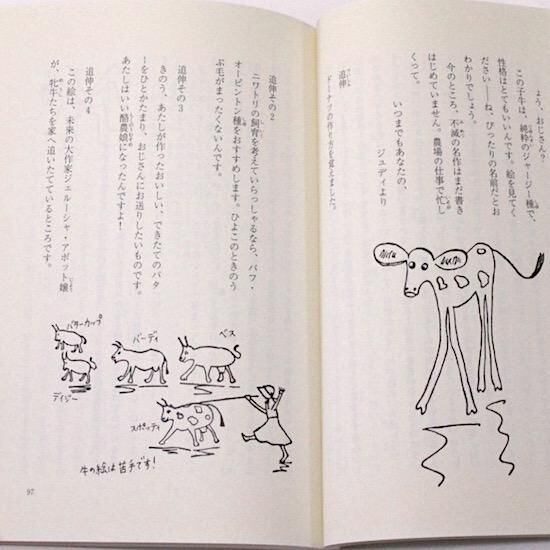 ょう、おじさん？
この子牛は、純粋のジャージー種で、
性格はとてもいいんです。絵を見てく
ださい――ね、ぴったりの名前だとお
わかりでしょう。
今のところ、不滅の名作はまだ書き
はじめていません。農場の仕事で忙し
くって。
いつまでもあなたの、
ジュディより
追伸
ドーナツの作り方を覚えました。
追伸その2
ニワトリの飼育を考えていらっしゃるなら、バフ・
オーピントン種をおすすめします。ひよこのときのう
ぶ毛がまったくないんです。
追伸その3
きのう、あたしが作ったおいしい、できたてのバタ
ーをひとかたまり、おじさんにお送りしたいものです。
あたしはいい酪農娘になったんですよ！
追伸その4
この絵は、未来の大作家ジェルーシャ・アボット嬢
が、牝牛たちを家へ追いたてているところです。
バターカップ
バーディ
ベス
デイジー
スポッティ
牛の絵は苦手です！
97